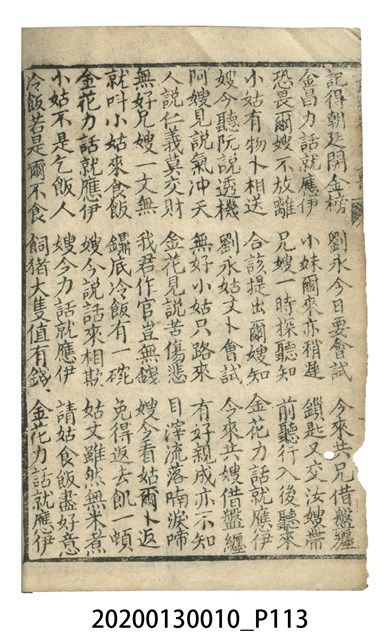 記得朝廷開金榜　劉永今日要會試　今來共兄借盤纏
金昌力話就應伊　小妹爾來亦稍遲　鎖匙又交汝嫂帶
恐畏爾嫂不放離　兄嫂一時探聽知　前聽行入後聽來
小姑有物卜相送　合該提出爾嫂知　金花力話就應伊
嫂今聽阮說透機　劉永姑丈卜會試　今來共嫂借盤纏
阿嫂見說氣冲天　無好小姑只路來　有好親成亦不知
人說仁義莫交財　金花見說苦傷悲　目滓流落喃淚啼
無好兄嫂一文無　我君作官豈無錢　嫂今看姑爾卜返
就叫小姑來食飯　鑷底冷飯有一碗　免得返去飢一頓
金花力話就應伊　嫂今說話來相欺　姑丈雖然無米煮
小姑不是乞飯人　嫂今力話就應伊　請姑食飯盡好意
冷飯若是爾不食　飼猪大隻值有錢　金花力話就應伊
20200130010_P113